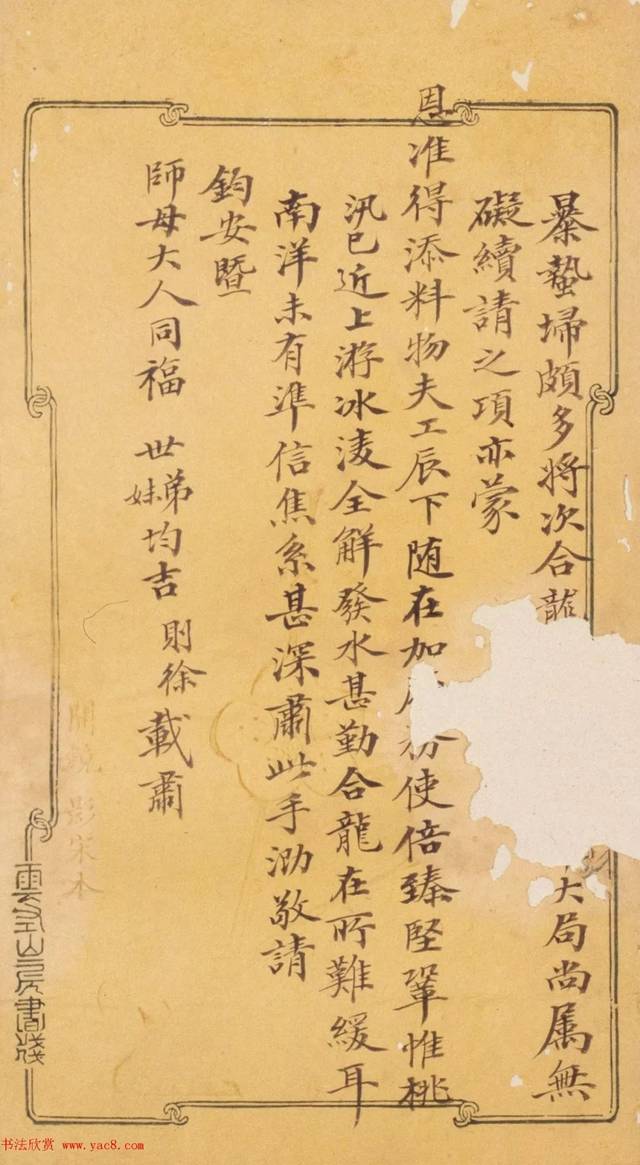 暴蟄埽頗多將次合龍大局尚属無
礙續請之項亦蒙
恩准得添料物夫工辰下随在加使倍臻堅鞏惟桃
汛已近上游冰淩全解發水甚勤合龍在所難緩耳
南洋未有準信焦系甚深肅此手泐敬請
鈞安暨
師母大人同福 世弟妹均吉 則徐載肅
影宋本
雲左山房書牋
书法欣赏 www.yac8.com